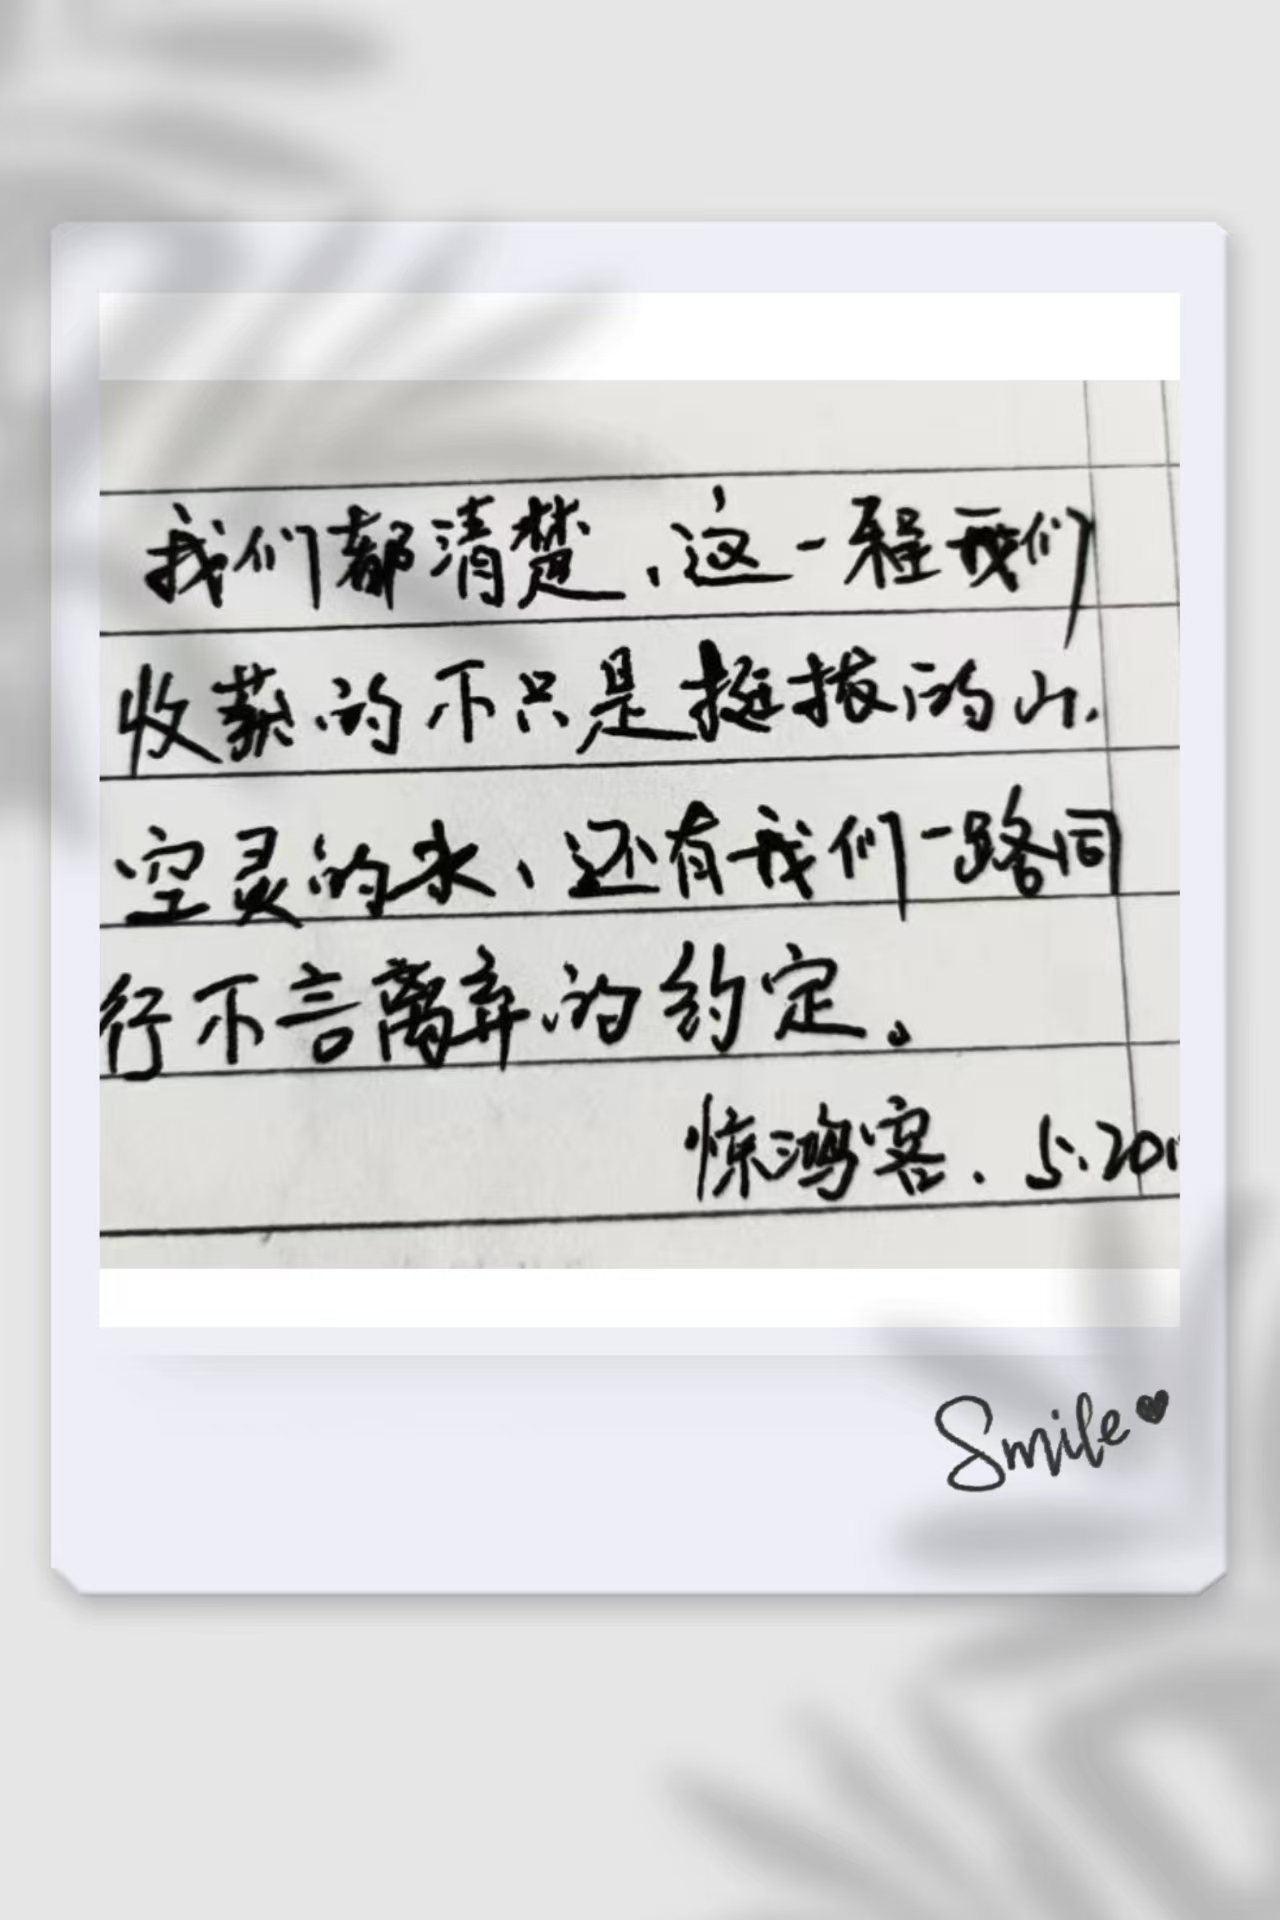 我们都清楚，这一程我们
收获的不只是挺拔的山、
空灵的水、还有我们一路同
行不言离弃的约定。
惊鸿客．5.20
Smile